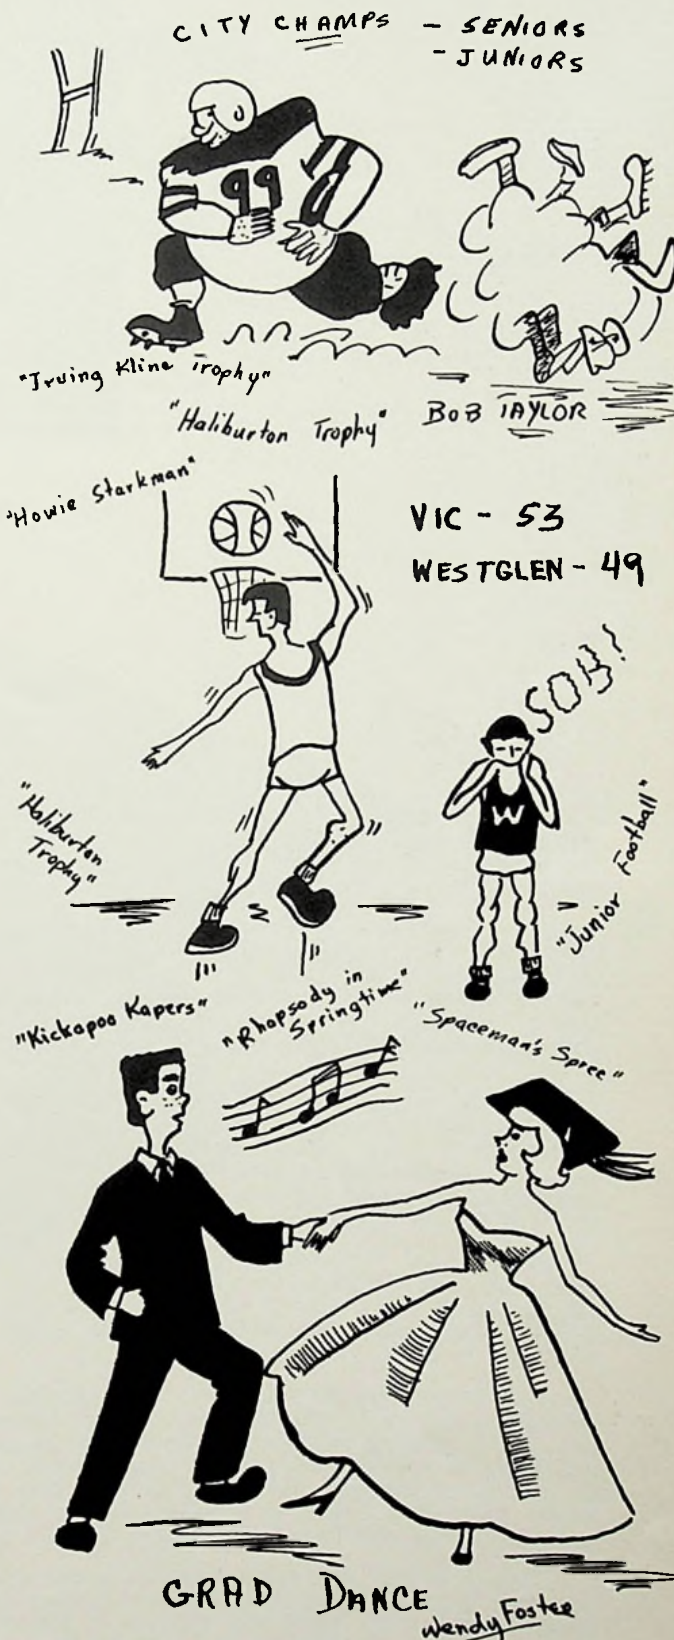 CITY CHAMPS - SENIORS
- JUNIORS
99
"Irving Kline Trophy"
"Haliburton Trophy"
BOB TAYLOR
"Howie Starkman"
VIC - 53
WESTGLEN - 49
SOB!
W
"Haliburton
Trophy"
"Junior Football"
"Kickapoo Kapers"
"Rhapsody in
Springtime"
"Spaceman's Spree"
GRAD DANCE
Wendy Foster